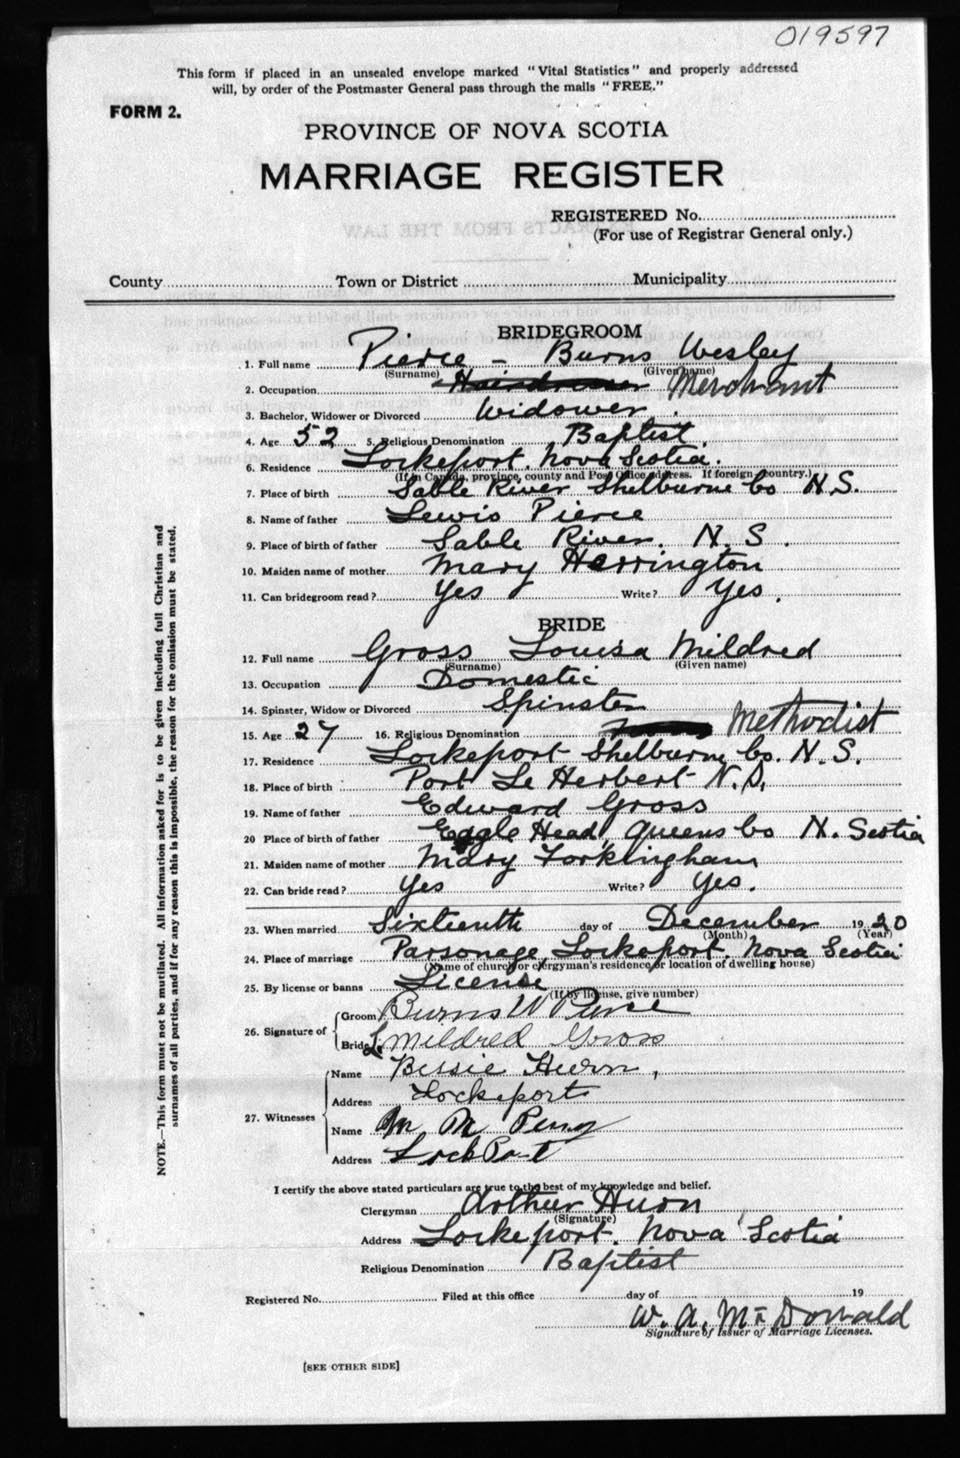 019597
This form if placed in an unsealed envelope marked "Vital Statistics" and properly addressed
will, by order of the Postmaster General pass through the mails "FREE."
FORM 2.
PROVINCE OF NOVA SCOTIA
MARRIAGE REGISTER
REGISTERED No.
(For use of Registrar General only.)
County Town or District Municipality
BRIDEGROOM
1. Full name Pierce - Burns Wesley
(Surname) (Given name)
2. Occupation Hairdresser Merchant
3. Bachelor, Widower or Divorced Widower.
4. Age 52 5. Religious Denomination Baptist.
6. Residence Lockeport. Nova Scotia.
(If in Canada, province, county and Post Office address. If foreign country.)
7. Place of birth Sable River Shelburne Co N.S.
8. Name of father Lewis Pierce
9. Place of birth of father Sable River. N.S.
10. Maiden name of mother Mary Harrington
11. Can bridegroom read? Yes Write? Yes.
BRIDE
12. Full name Gross Louisa Mildred
(Surname) (Given name)
13. Occupation Domestic
14. Spinster, Widow or Divorced Spinster
15. Age 27 16. Religious Denomination Methodist
17. Residence Lockeport Shelburne Co. N.S.
18. Place of birth Port Le Herbert N.S.
19. Name of father Edward Gross
20 Place of birth of father Eagle Head, Queens Co N. Scotia
21. Maiden name of mother Mary Forkingham
22. Can bride read? Yes Write? Yes.
23. When married Sixteenth day of December 1920
(Month) (Year)
24. Place of marriage Parsonage, Lockeport. Nova Scotia
(Name of church or clergyman's residence or location of dwelling house)
25. By license or banns License
(If by license, give number)
26. Signature of Groom Burns W Pierce
Bride L. Mildred Gross
27. Witnesses Name Bessie Huron,
Address Lockeport
Name M M Perry
Address LockPort
I certify the above stated particulars are true to the best of my knowledge and belief.
Clergyman Arthur Huron
(Signature)
Address Lockeport. Nova Scotia
Religious Denomination Baptist
Registered No. Filed at this office day of 19
W. A. McDonald
Signature of Issuer of Marriage Licenses.
[SEE OTHER SIDE]
NOTE.—This form must not be mutilated. All information asked for is to be given including full Christian and
surnames of all parties, and if for any reason this is impossible, the reason for the omission must be stated.